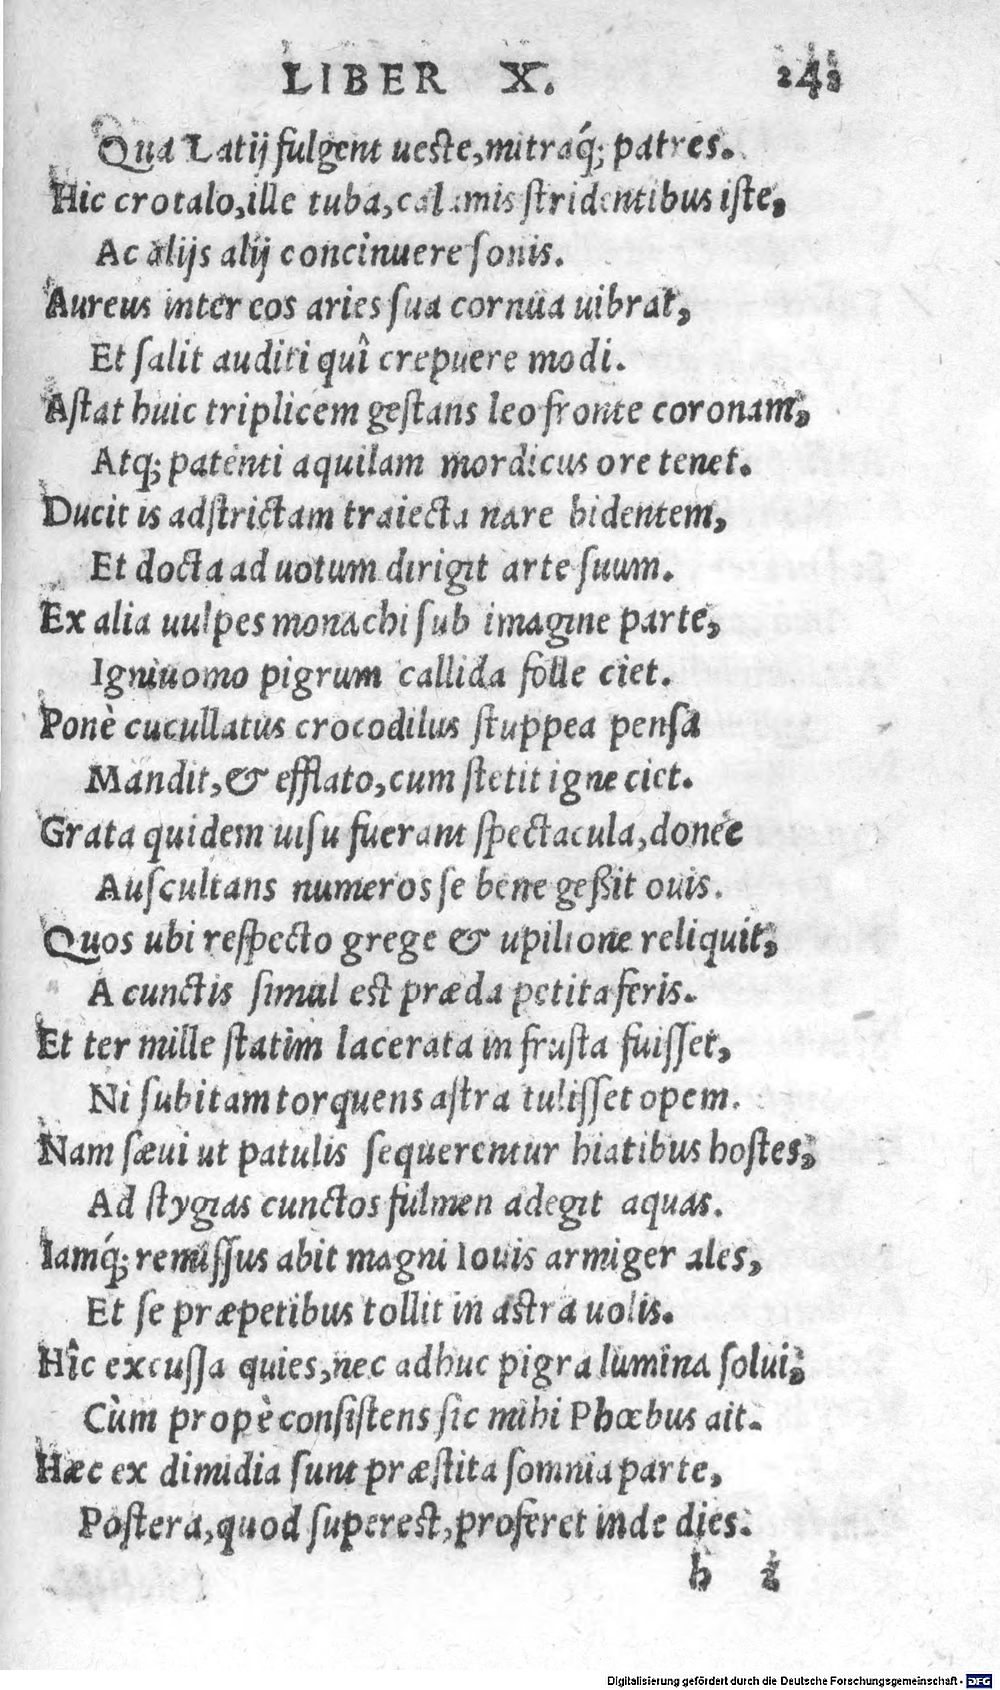 LIBER X. 243
Qua Latij fulgent ueste, mitraq́; patres.
Hic crotalo, ille tuba, calamis stridentibus iste,
Ac alijs alij concinuere sonis.
Aureus inter eos aries sua cornua uibrat,
Et salit auditi quî crepuere modi.
Astat huic triplicem gestans leo fronte coronam,
Atq; patenti aquilam mordicus ore tenet.
Ducit is adstrictam traiecta nare bidentem,
Et docta ad uotum dirigit arte suum.
Ex alia uulpes monachi sub imagine parte,
Igniuomo pigrum callida folle ciet.
Ponè cucullatus crocodilus stuppea pensa
Mandit, & efflato, cum stetit igne ciet.
Grata quidem uisu fuerant spectacula, donec
Auscultans numeros se bene geßit ouis.
Quos ubi respecto grege & upilione reliquit,
A cunctis simul est præda petita feris.
Et ter mille statim lacerata in frusta fuisset,
Ni subitam torquens astra tulisset opem.
Nam sæui ut patulis sequerentur hiatibus hostes,
Ad stygias cunctos fulmen adegit aquas.
Iamq́; remissus abit magni Iouis armiger ales,
Et se præpetibus tollit in astra uolis.
Hîc excussa quies, nec adhuc pigra lumina solui,
Cùm propè consistens sic mihi Phœbus ait.
Hæc ex dimidia sunt præstita somnia parte,
Postera, quod superest, proferet inde dies.
h
Digitalisierung gefördert durch die Deutsche Forschungsgemeinschaft - DFG